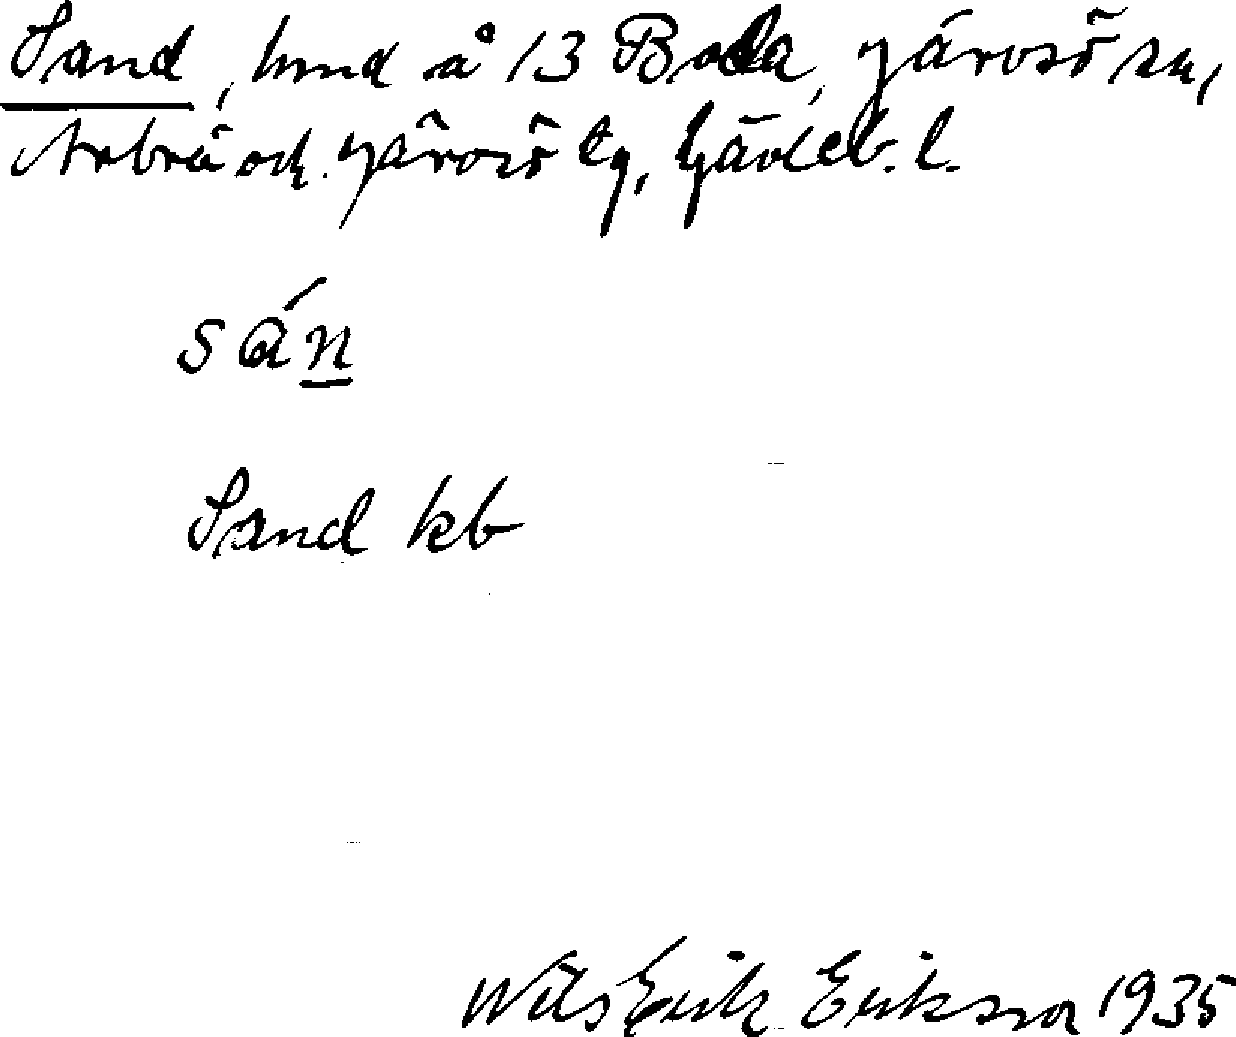 Sand, hmd å 13 Boda, Järvsö sn,
Arbrå och Järvsö tg, Gävleb. l.
sán
Sand kb
Nils Erik Eriksson 1935